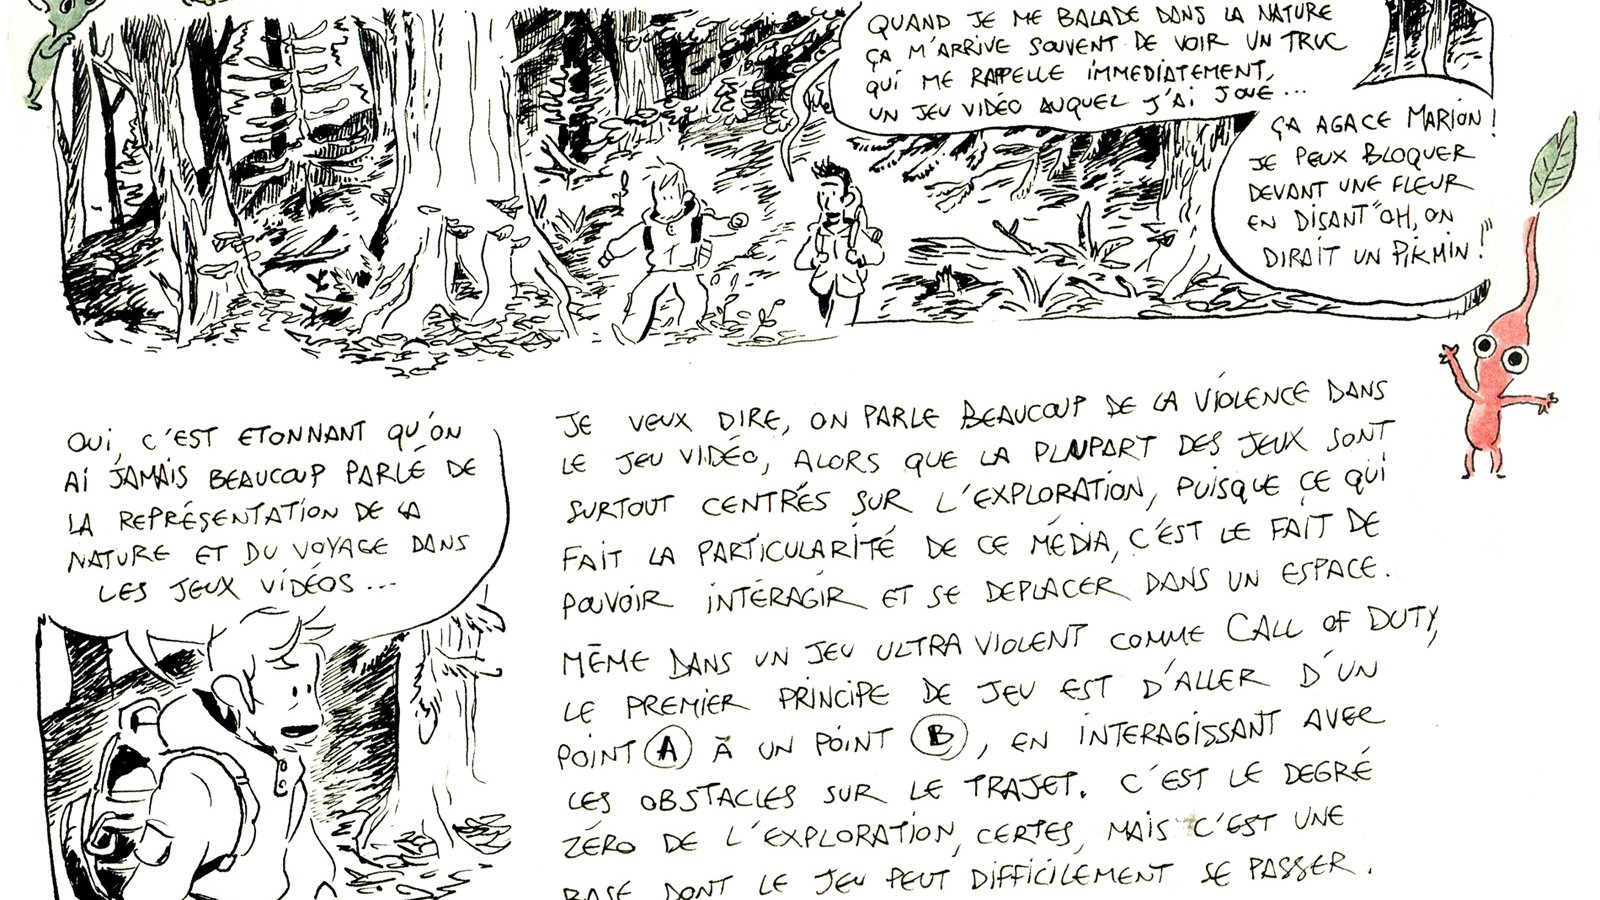 QUAND JE ME BALADE DANS LA NATURE
ÇA M'ARRIVE SOUVENT DE VOIR UN TRUC
QUI ME RAPPELLE IMMEDIATEMENT,
UN JEU VIDÉO AUQUEL J'AI JOUE...
ÇA AGACE MARION!
JE PEUX BLOQUER
DEVANT UNE FLEUR
EN DISANT "OH, ON
DIRAIT UN PIKMIN!"
OUI, C'EST ETONNANT QU'ON
AI JAMAIS BEAUCOUP PARLÉ DE
LA REPRÉSENTATION DE LA
NATURE ET DU VOYAGE DANS
LES JEUX VIDÉOS...
JE VEUX DIRE, ON PARLE BEAUCOUP DE LA VIOLENCE DANS
LE JEU VIDÉO, ALORS QUE LA PLUPART DES JEUX SONT
SURTOUT CENTRÉS SUR L'EXPLORATION, PUISQUE CE QUI
FAIT LA PARTICULARITÉ DE CE MÉDIA, C'EST LE FAIT DE
POUVOIR INTERAGIR ET SE DEPLACER DANS UN ESPACE.
MÊME DANS UN JEU ULTRA VIOLENT COMME CALL OF DUTY,
LE PREMIER PRINCIPE DE JEU EST D'ALLER D'UN
POINT A À UN POINT B, EN INTERAGISSANT AVEC
LES OBSTACLES SUR LE TRAJET. C'EST LE DEGRÉ
ZÉRO DE L'EXPLORATION, CERTES, MAIS C'EST UNE
BASE DONT LE JEU PEUT DIFFICILEMENT SE PASSER.